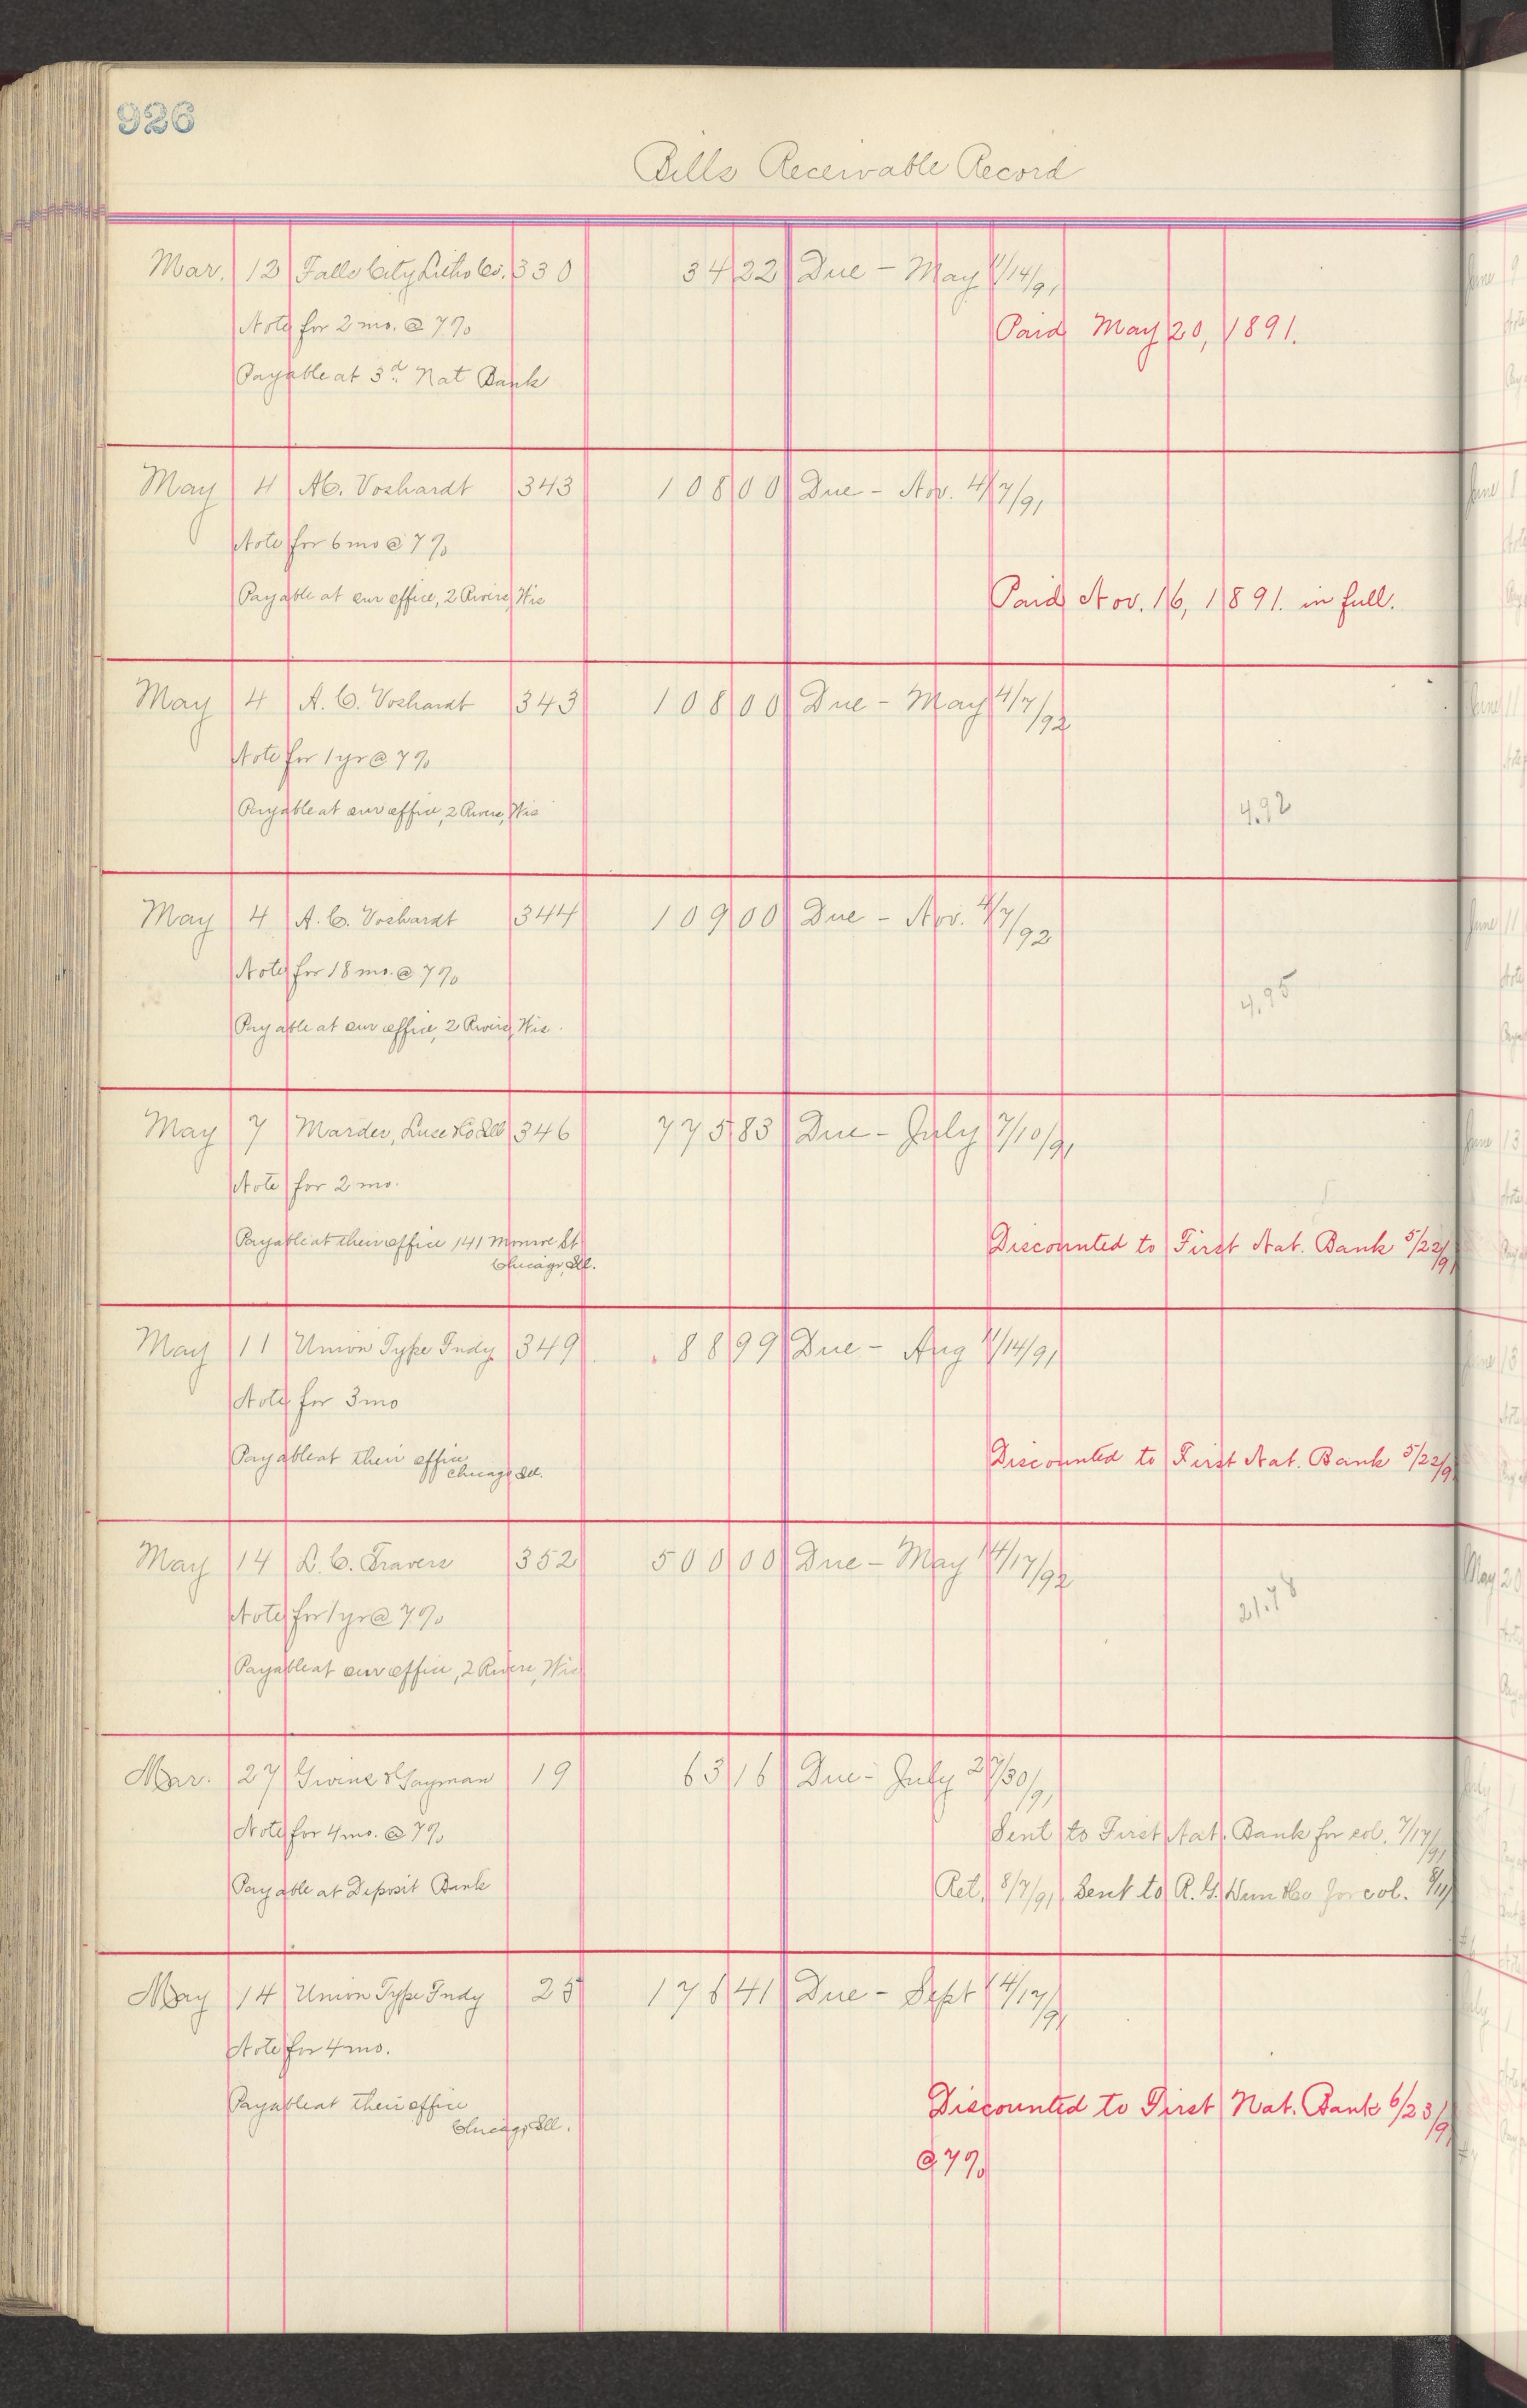 926
Bills Receivable Record
Mar. 12 Falls City Litho Co. 330 34 22 Due - May 11/14/91
Note for 2 mo. @ 7%
Paid May 20, 1891.
Payable at 3d Nat Bank
May 4 A.C. Voshardt 343 108 00 Due - Nov. 4/7/91
Note for 6 mo @ 7%
Payable at our office, 2 Rivers, Wis
Paid Nov. 16, 1891. in full.
May 4 A. C. Voshardt 343 108 00 Due - May 4/7/92
Note for 1 yr @ 7%
Payable at our office, 2 Rivers, Wis
4.92
May 4 A. C. Voshardt 344 109 00 Due - Nov. 4/7/92
Note for 18 mo. @ 7%
4.95
Payable at our office, 2 Rivers, Wis.
May 7 Marder, Luse & Co Ill 346 775 83 Due - July 7/10/91
Note for 2 mo.
Payable at their office 141 Monroe St
Chicago, Ill.
Discounted to First Nat. Bank 5/22/91
May 11 Union Type Fndy 349 88 99 Due - Aug 11/14/91
Note for 3 mo
Payable at their office
Chicago Ill.
Discounted to First Nat. Bank 5/22/91
May 14 L. C. Travers 352 500 00 Due - May 14/17/92
Note for 1 yr @ 7%
21.78
Payable at our office, 2 Rivers, Wis
Mar. 27 & Gayman 19 63 16 Due - July 27/30/91
Note for 4 mo. @ 7%
Sent to First Nat. Bank for col. 7/17/91
Payable at Deposit Bank
Ret. 8/7/91, Sent to R. G. Dun & Co for col. 8/11
May 14 Union Type Fndy 25 176 41 Due - Sept 14/17/91
Note for 4 mo.
Payable at their office
Chicago, Ill.
Discounted to First Nat. Bank 6/23/91
@ 7%